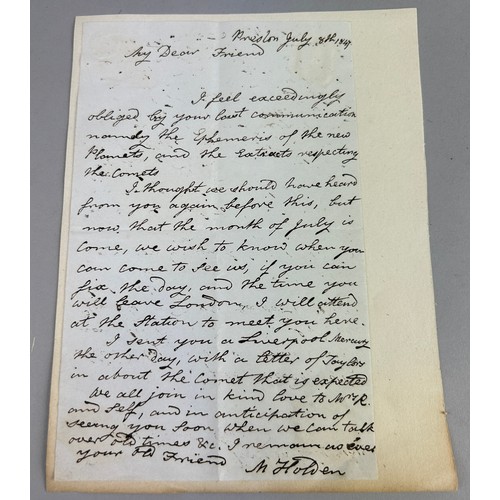 Preston July 8th 1847
My Dear Friend
I feel exceedingly
obliged by your last communication
namely the Ephemeris of the new
Planets, and the Extracts respecting
the Comets
I thought we should have heard
from you again before this, but
now, that the month of July is
come, we wish to know when you
can come to see us, if you can
fix the day, and the time you
will leave London, I will attend
at the Station to meet you here.
I sent you a Liverpool Mercury
the other day, with a letter of Taylor's
in about the Comet that is expected
We all join in kind love to Mrs R.
and Self, and in anticipation of
seeing you soon when we can talk
over old times &c. I remain as ever
your old Friend M Holden